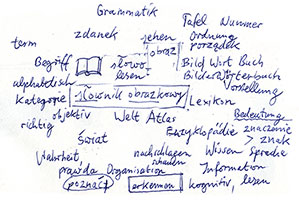 Grammatik
zdanek sehen Tafel Nummer
term obraz Ordnung
porządek
Begriff słowo Bild Wort Buch
lesen Bilderwörterbuch
alphabetisch Vorstellung
Kategorie słownik obrazkowy Lexikon
objektiv Welt Atlas Bedeutung
richtig Enzyklopädie znaczenie
> znak
Świat
nachschlagen Wissen Sprache
Wahrheit,
prawda Organisation Information
poznać erkennen kognitiv, lesen